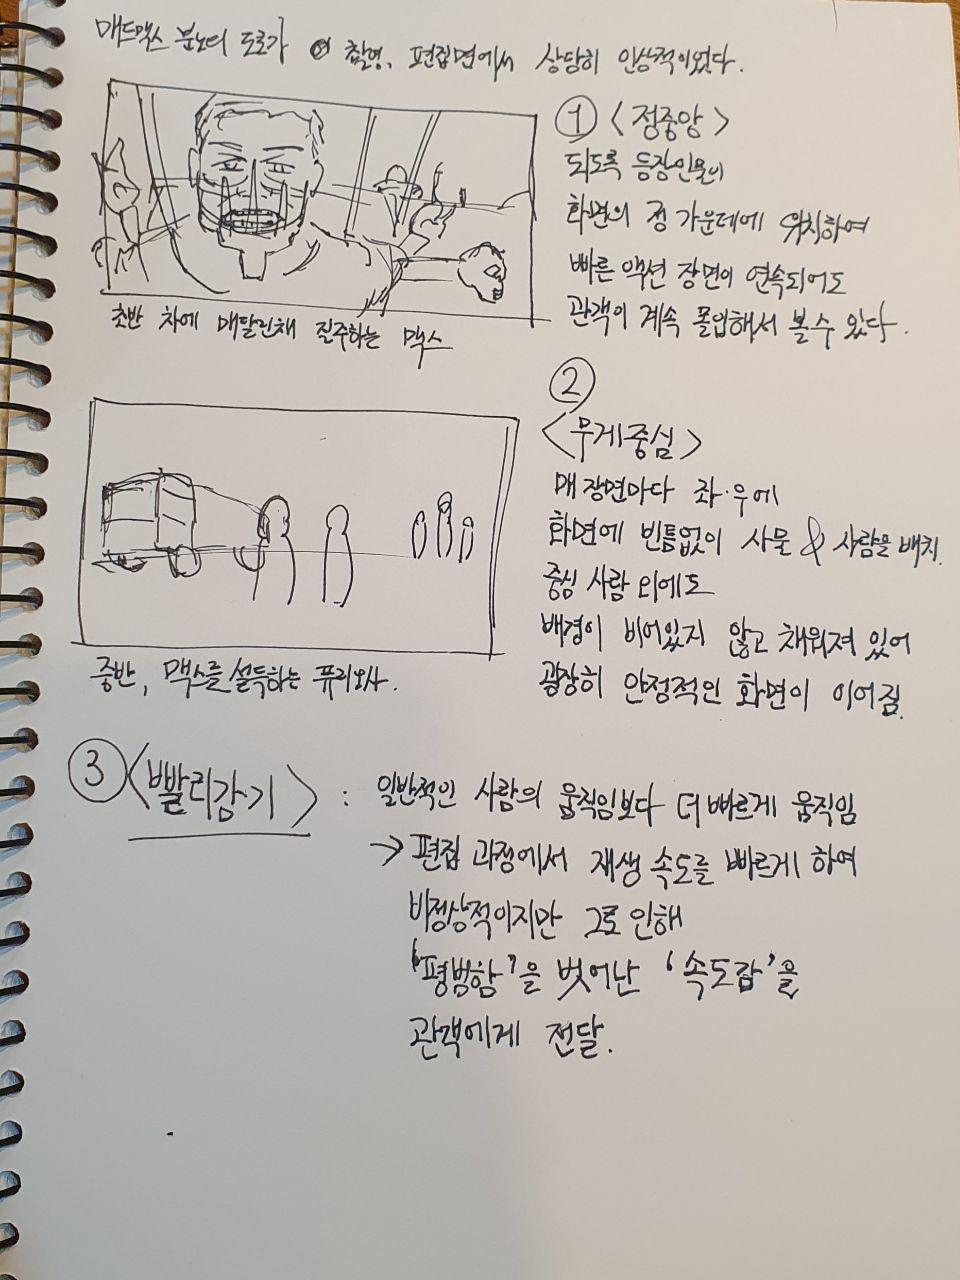 매드맥스 분노의 도로가 촬영, 편집면에서 상당히 인상적이었다.
① <정중앙>
되도록 등장인물이
화면의 정 가운데에 위치하여
빠른 액션 장면이 연속되어도
관객이 계속 몰입해서 볼 수 있다.
초반 차에 매달린채 질주하는 맥스
②
<무게중심>
매 장면마다 좌·우에
화면에 빈틈없이 사물 & 사람을 배치.
중심 사람 외에도
배경이 비어있지 않고 채워져 있어
굉장히 안정적인 화면이 이어짐.
중반, 맥스를 설득하는 퓨리오사.
③ <빨리감기> : 일반적인 사람의 움직임보다 더 빠르게 움직임
→ 편집 과정에서 재생 속도를 빠르게 하여
비정상적이지만 그로 인해
'평범함'을 벗어난 '속도감'을
관객에게 전달.